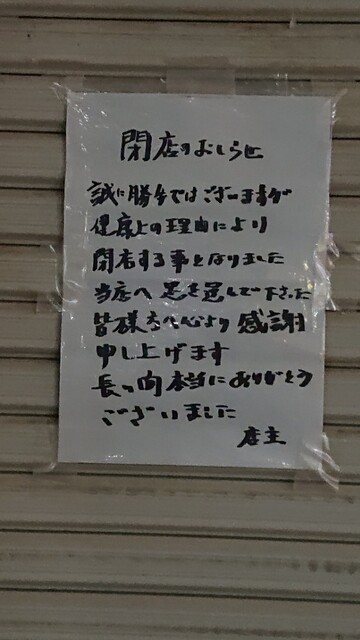 閉店のおしらせ
誠に勝手ではございますが
健康上の理由により
閉店する事となりました
当店へ足を運んで下さった
皆様方へ心より感謝
申し上げます
長い間本当にありがとう
ございました
店主